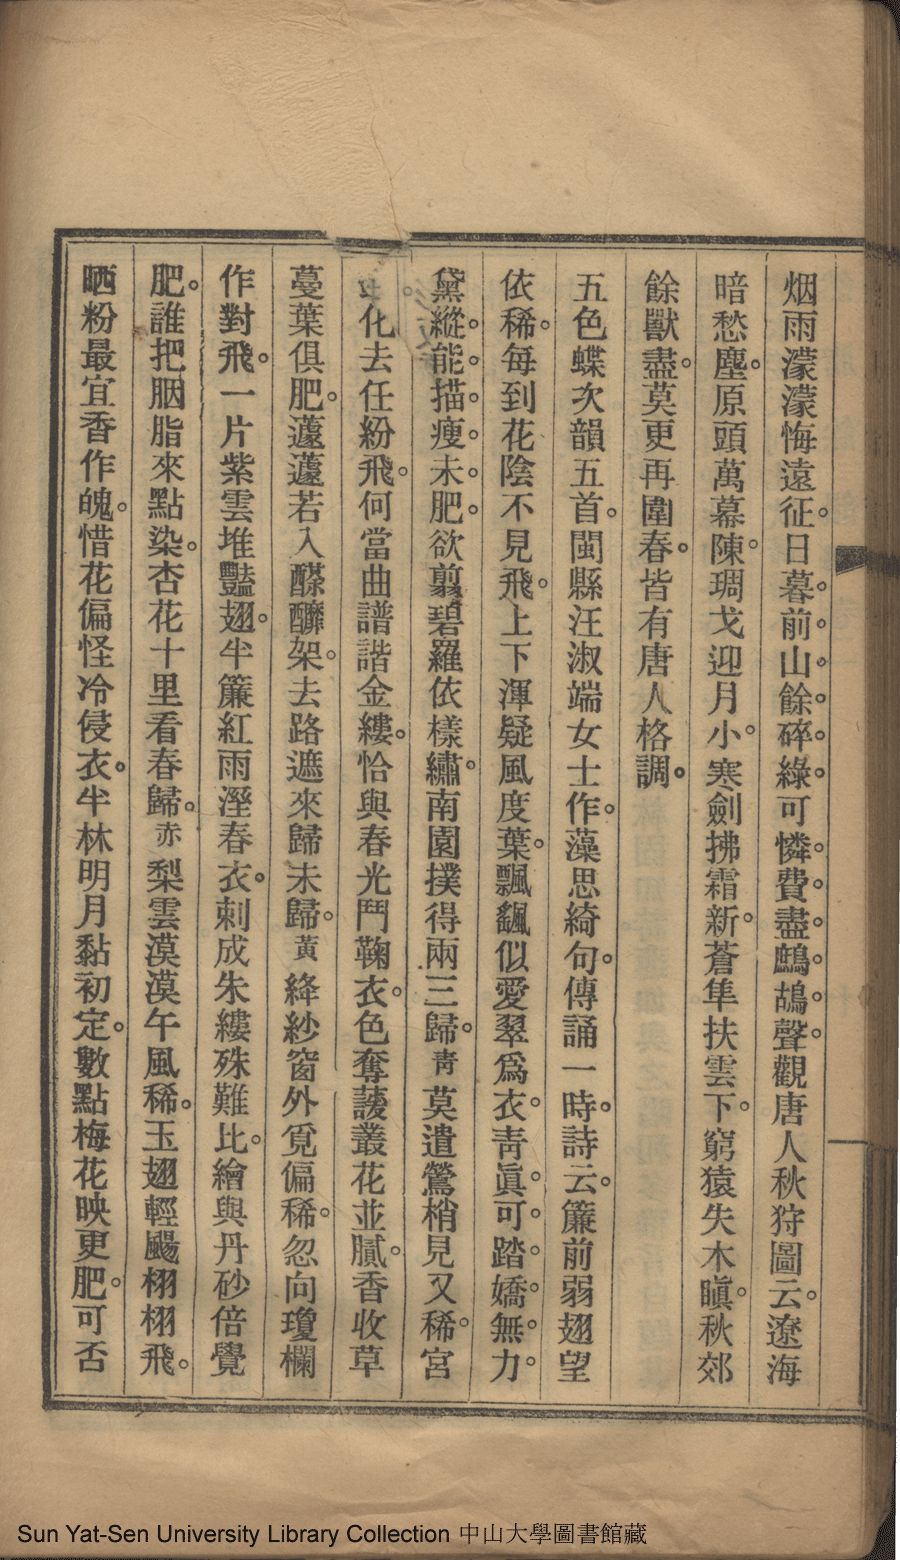 烟雨濛濛悔遠征。日暮。前。山。餘。碎。綠。可憐。費。盡。鷓。鴣。聲。觀唐人秋狩圖云。遼海
暗愁塵。原頭萬幕陳。琱戈迎月小。寒劍拂霜新。蒼隼扶雲下。窮猿失木瞋。秋郊
餘獸盡。莫更再圍春。皆有唐人格調。
五色蝶次韻五首。閩縣汪淑端女士作。藻思綺句。傳誦一時。詩云。簾前弱翅望
依稀。每到花陰不見飛。上下渾疑風度葉。飄颻似愛翠爲衣。靑眞。可。踏。嬌。無。力。
黛縱。能。描。瘦。未。肥。欲翦碧羅依樣繡。南園撲得兩三歸。靑 莫遣鶯梢見又稀。宮
化去任紛飛。何當曲譜諧金縷。恰與春光鬥鞠衣。色奪護叢花並膩。香收草
蔓葉俱肥。蘧蘧若入醾醿架。去路遮來歸未歸。黃 絳紗窗外覓偏稀。忽向瓊欄
作對飛。一片紫雲堆豔翅。半簾紅雨溼春衣。刺成朱縷殊難比。繪與丹砂倍覺
肥。誰把胭脂來點染。杏花十里看春歸。赤 梨雲漠漠午風稀。玉翅輕颺栩栩飛。
晒粉最宜香作魄。惜花偏怪冷侵衣。半林明月黏初定。數點梅花映更肥。可否
Sun Yat-Sen University Library Collection 中山大學圖書館藏